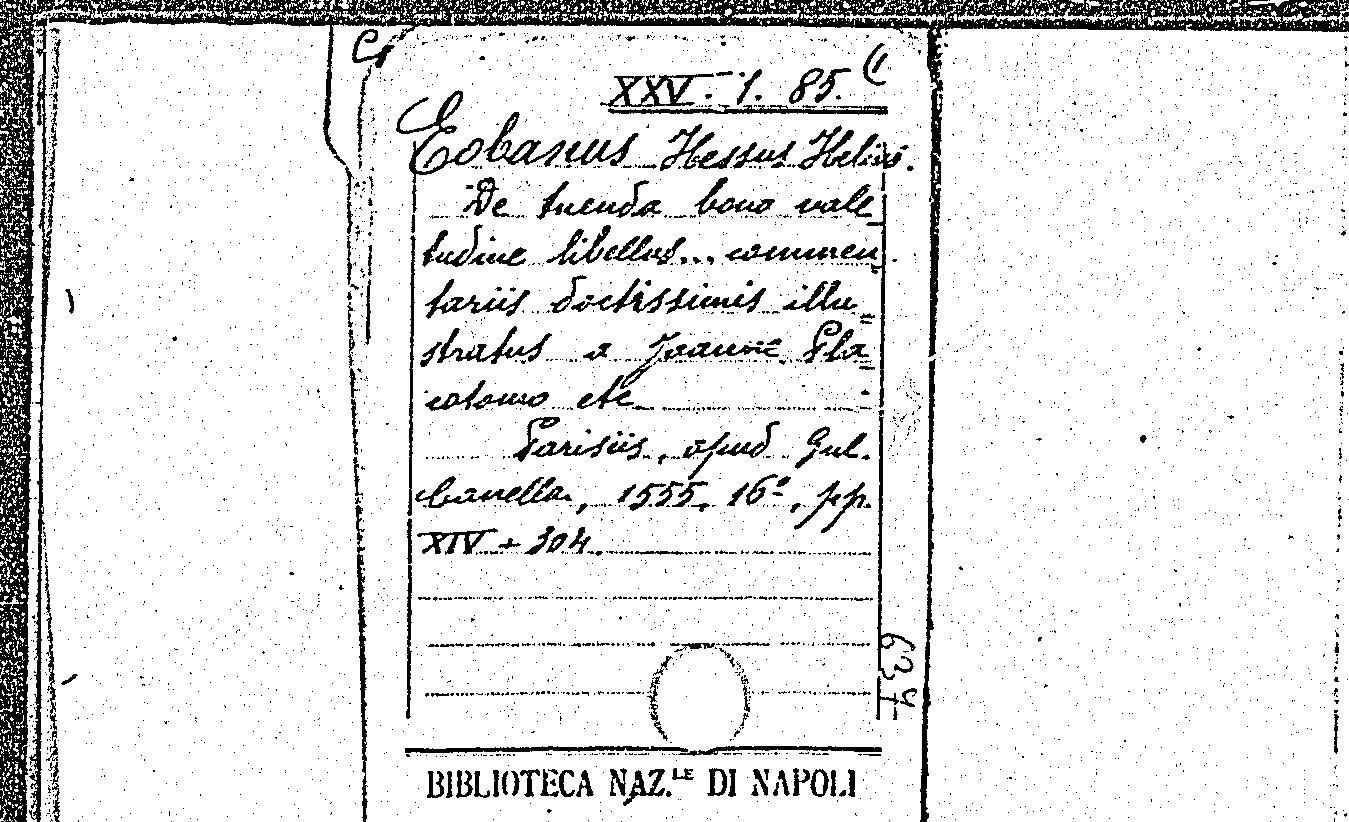 XXV. 1. 85. (1
Eobanus Hessus Helius.
De tuenda bona vale_
tudine libellus... commen_
tariis doctissimis illu=
stratus a Joanne Pla=
cotomo etc
Parisiis, apud Gul.
Cavella, 1555, 16º, pp.
XIV + 304.
637
BIBLIOTECA NAZ.LE DI NAPOLI